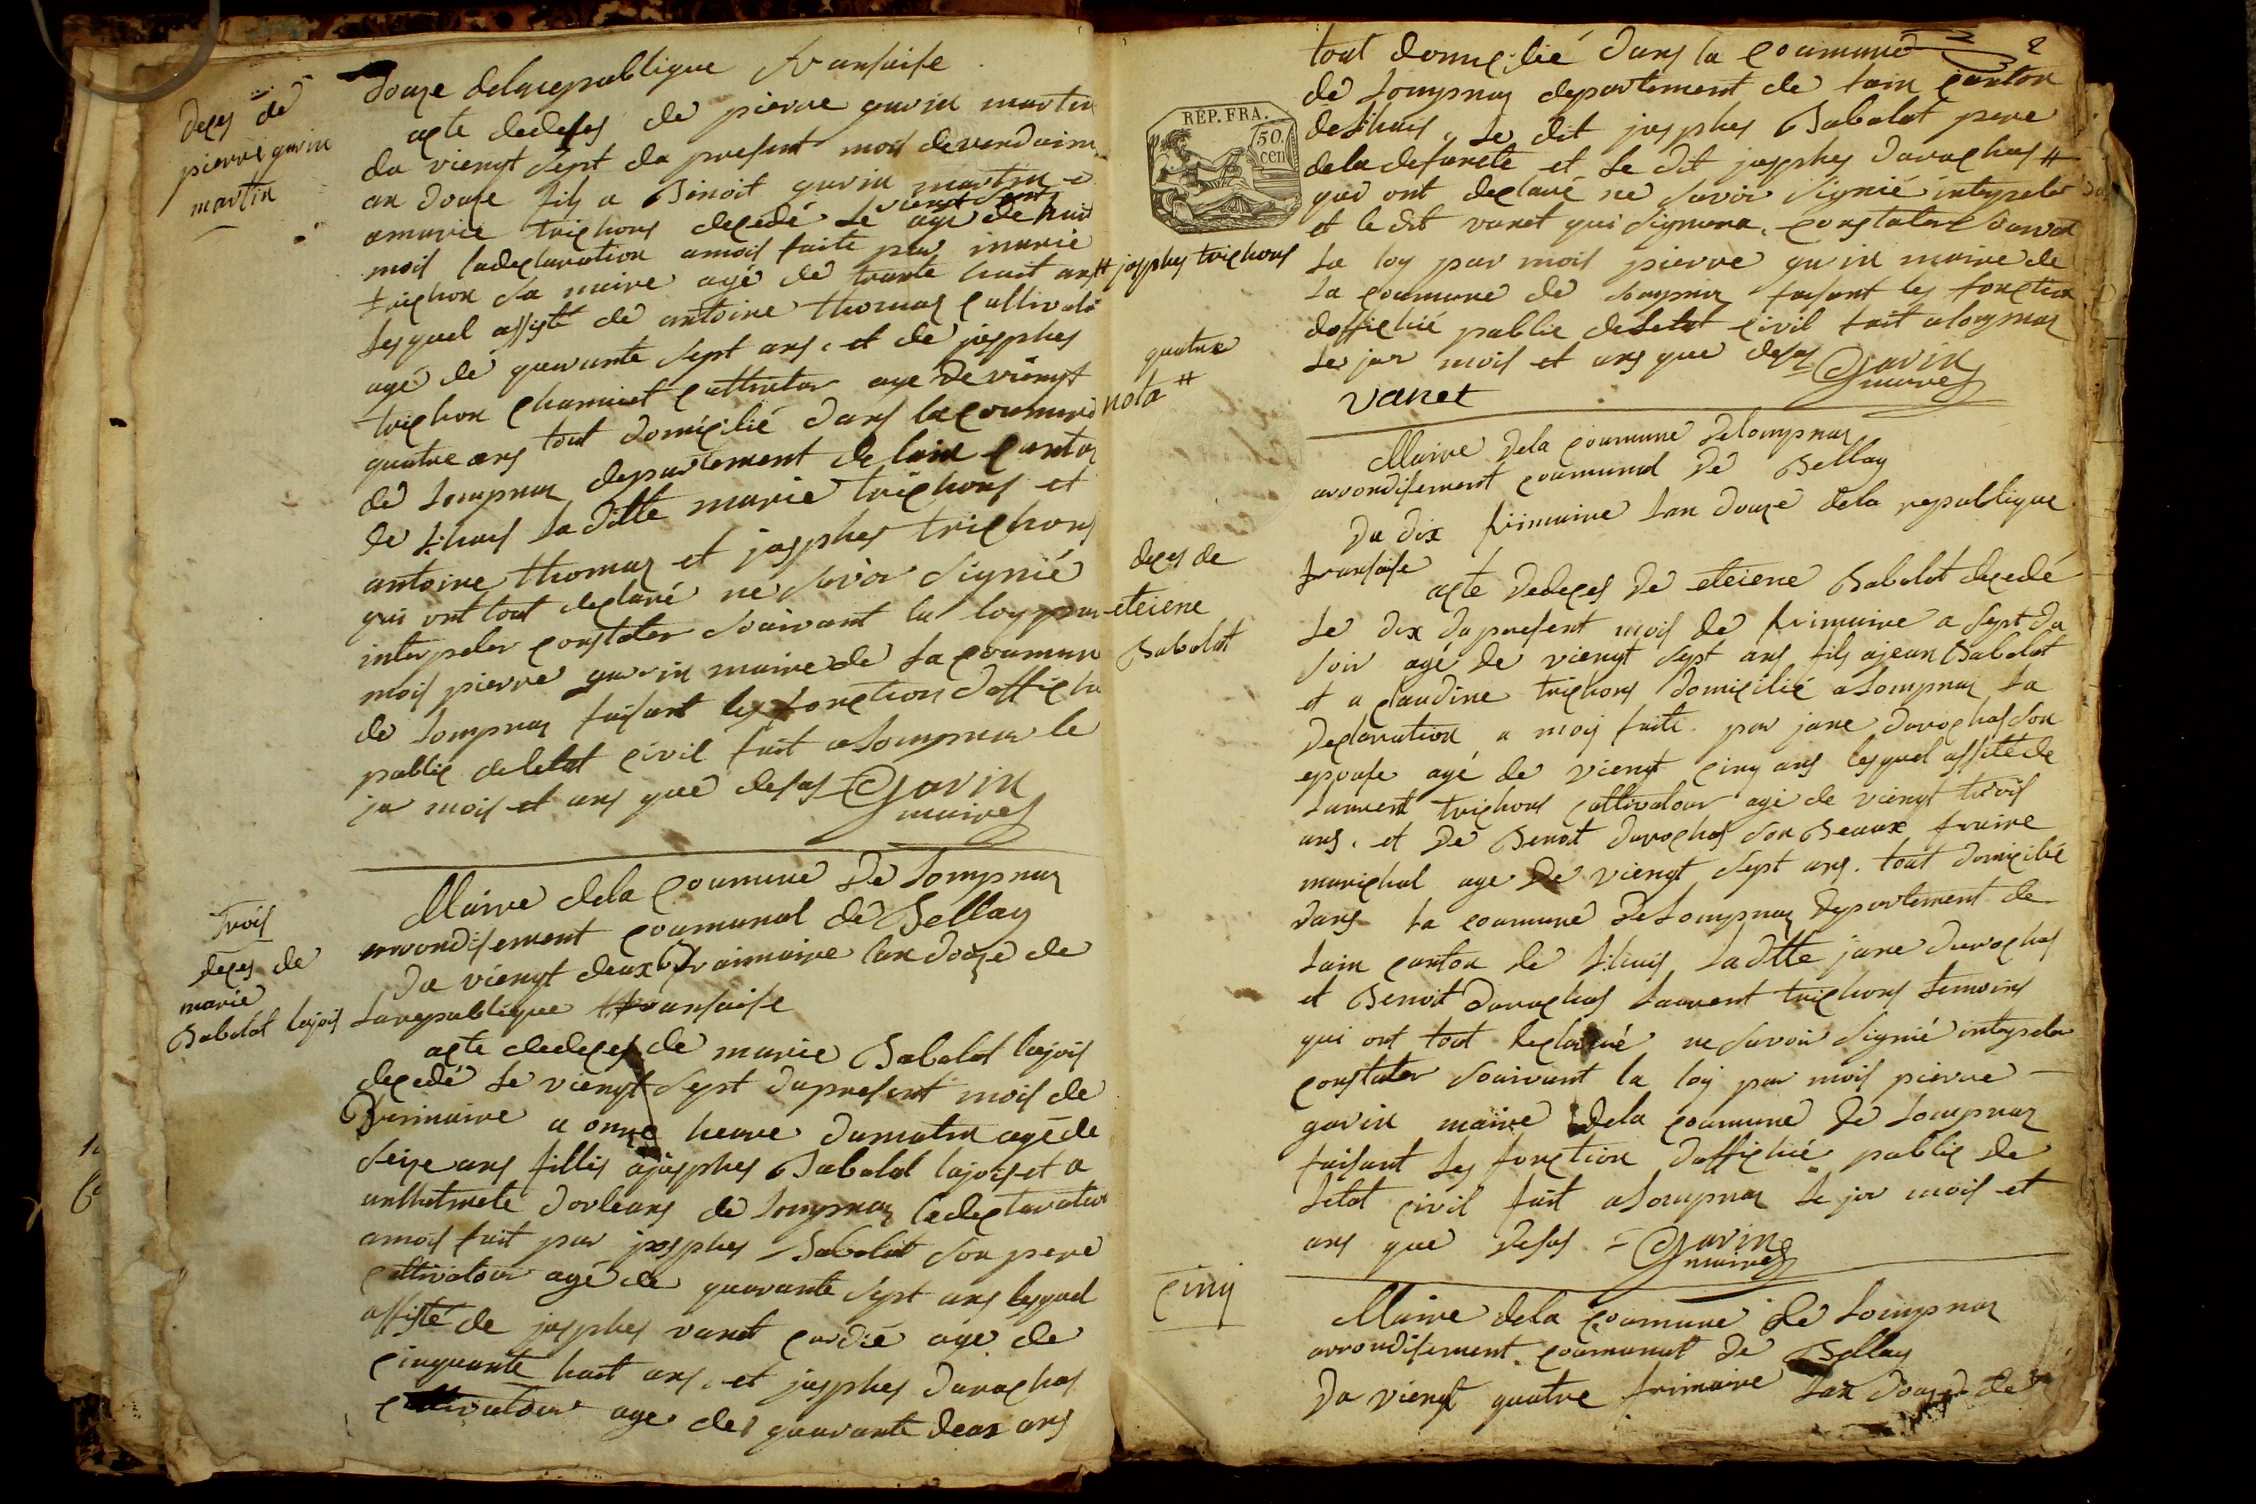 deces de
pierre gurin
martin
douze delarepublique fransaise
acte dedeses de pierre gurin martin
du viengt sept du present mois devendaim
an douze fils a Binoit gurin martin e
amarie trichons decedé le viengt sept agé de huit
mois ladeclaration amois faite par marie
trichon sa maire agé de trante huit ans
lesquel assisté de antoine thomas cultivate
agé de quarante sept ans. et de josphes
trichon chamuet cultivator age de viengt
quatre ans tout domicilié dans la coumune
de Lompnas departement de lain canton
de lhuis la ditte marie trichons et
antoine thomas et josphes trichons
qui ont tout declaré ne savoir signié
interpeler constater souivant la loy par
mois pierre gurin maire de la coumun
de Lompnas faisant les fonction daffichie
public deletat civil fait a Lompnas le
jor mois et ans que desus Gurin
maire
Trois
deces de
marie
Babolat lajois
Maire dela coumune de Lompnas
arrondisement coumunal de Bellay
Du viengt deux frimaire lan douze de
larepublique fransaise
acte dedeces de marie Babolat lajois
decedé le viengt sept dupresent mois de
frimaire a onze heure dumatin agé de
seize ans fillis ajosphes Babolat lajois et a
anthelmete dorleans de Lompnas ladeclaration
amois fait par josphes Babolat son pere
cultivatour agé de quarante sept ans lesquel
assisté de josphes vanet age de
cinquante huit ans. et josphes durochas
cultivatour age de quarante deux ans
2
tout domicilié dans la coumune
de Lompnas departement de lain canton
delhuis, le dit josphes Babolat pere
dela defuncte et le dit josphes durochas #
qui ont declaré ne savoir signié interpeler
et le dit vanet qui signera. constater souivan
la loy par mois pierre gurin maire de
la coumune de Lompnas faisant les fonction
daffichié public deletat civil fait a Lompnas
le jor mois et ans que desus Gurin
maire
vanet
RÉP. FRA.
50.
cen
# josphes trichons
quatre
nota #
deces de
eteiene
Babolat
Maire dela coumune deLompnas
arrondisement coumunal de Bellay
Du dix frimaire lan douze dela republique
fransaise
acte dedeces de eteiene Babolat decedé
le dix dupresent mois de frimaire a sept du
soir agé de viengt sept ans fils ajean Babolat
et a claudine trichons domicilié a Lompnas la
declaration a mois faite par jane durochas son
epouse agé de viengt cinq ans lesquel assité de
laurent trichons cultivatour agé de viengt trois
ans. et de Benoit durochas son Beaux fraire
marichal age de viengt sept ans. tout domicilié
dans la coumune de Lompnas departement de
lain canton de lhuis laditte jane durochas
et Benoit durochas laurent trichons temoins
qui ont tout declaré ne savoir signié interpeler
constater souivant la loy par mois pierre
gurin maire dela coumune de Lompnas
faisant les fonction daffichié public de
letat civil fait a Lompnas le jor mois et
ans que desus = Gurin
maire
cinq
Maire dela coumune de Lompnas
arrondisement coumunal de Bellay
Du viengt quatre frimaire lan douze de